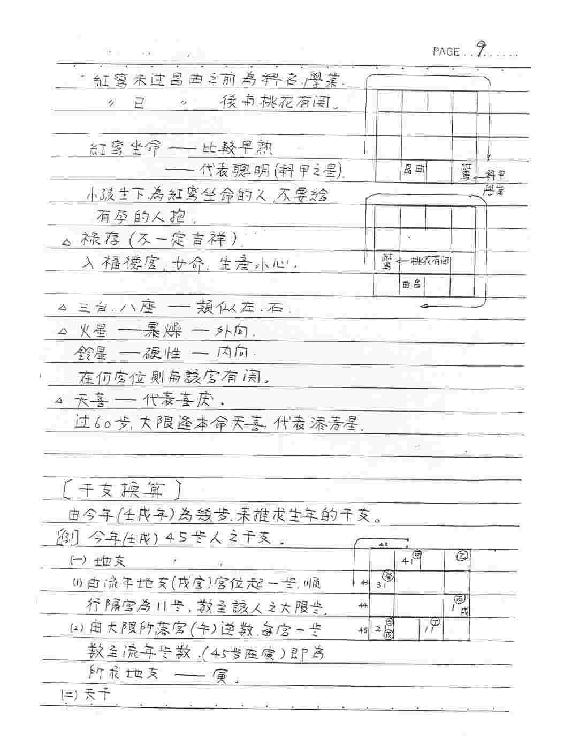 PAGE 9
紅鸞未过昌曲之前為科名.學業.
〃 已 〃 後有桃花有関.
紅鸞坐命 — 比較早熟
— 代表聰明(科甲之星).
昌曲
紅鸞 ← 科甲學業
小孩生下為紅鸞坐命的人.不要給
有孕的人抱.
△ 祿存 (不一定吉祥).
入福德宮.女命.生產小心.
紅鸞 ← 桃花有関
曲昌
△ 三台.八座 — 類似左.右.
△ 火星 — 暴燥 — 外向.
鈴星 — 硬性 — 内向.
在何宮位則與該宮有関。
△ 天喜 — 代表喜慶.
过60步.大限逢本命天喜.代表添壽星.
[干支換算]
由今年(壬戌年)為幾步.来推求生年的干支。
[例] 今年(壬戌) 45步人之干支.
(一) 地支
(1) 由流年地支(戌宮)宮位起一步.順
行隔宮為11步.數至該人之大限步.
(2) 由大限所落宮(午)逆數.每宮一步
數至流年步數.(45步在寅)即為
所求地支 — 寅。
(二) 天干
41
31
44
1 戌
45
21
11